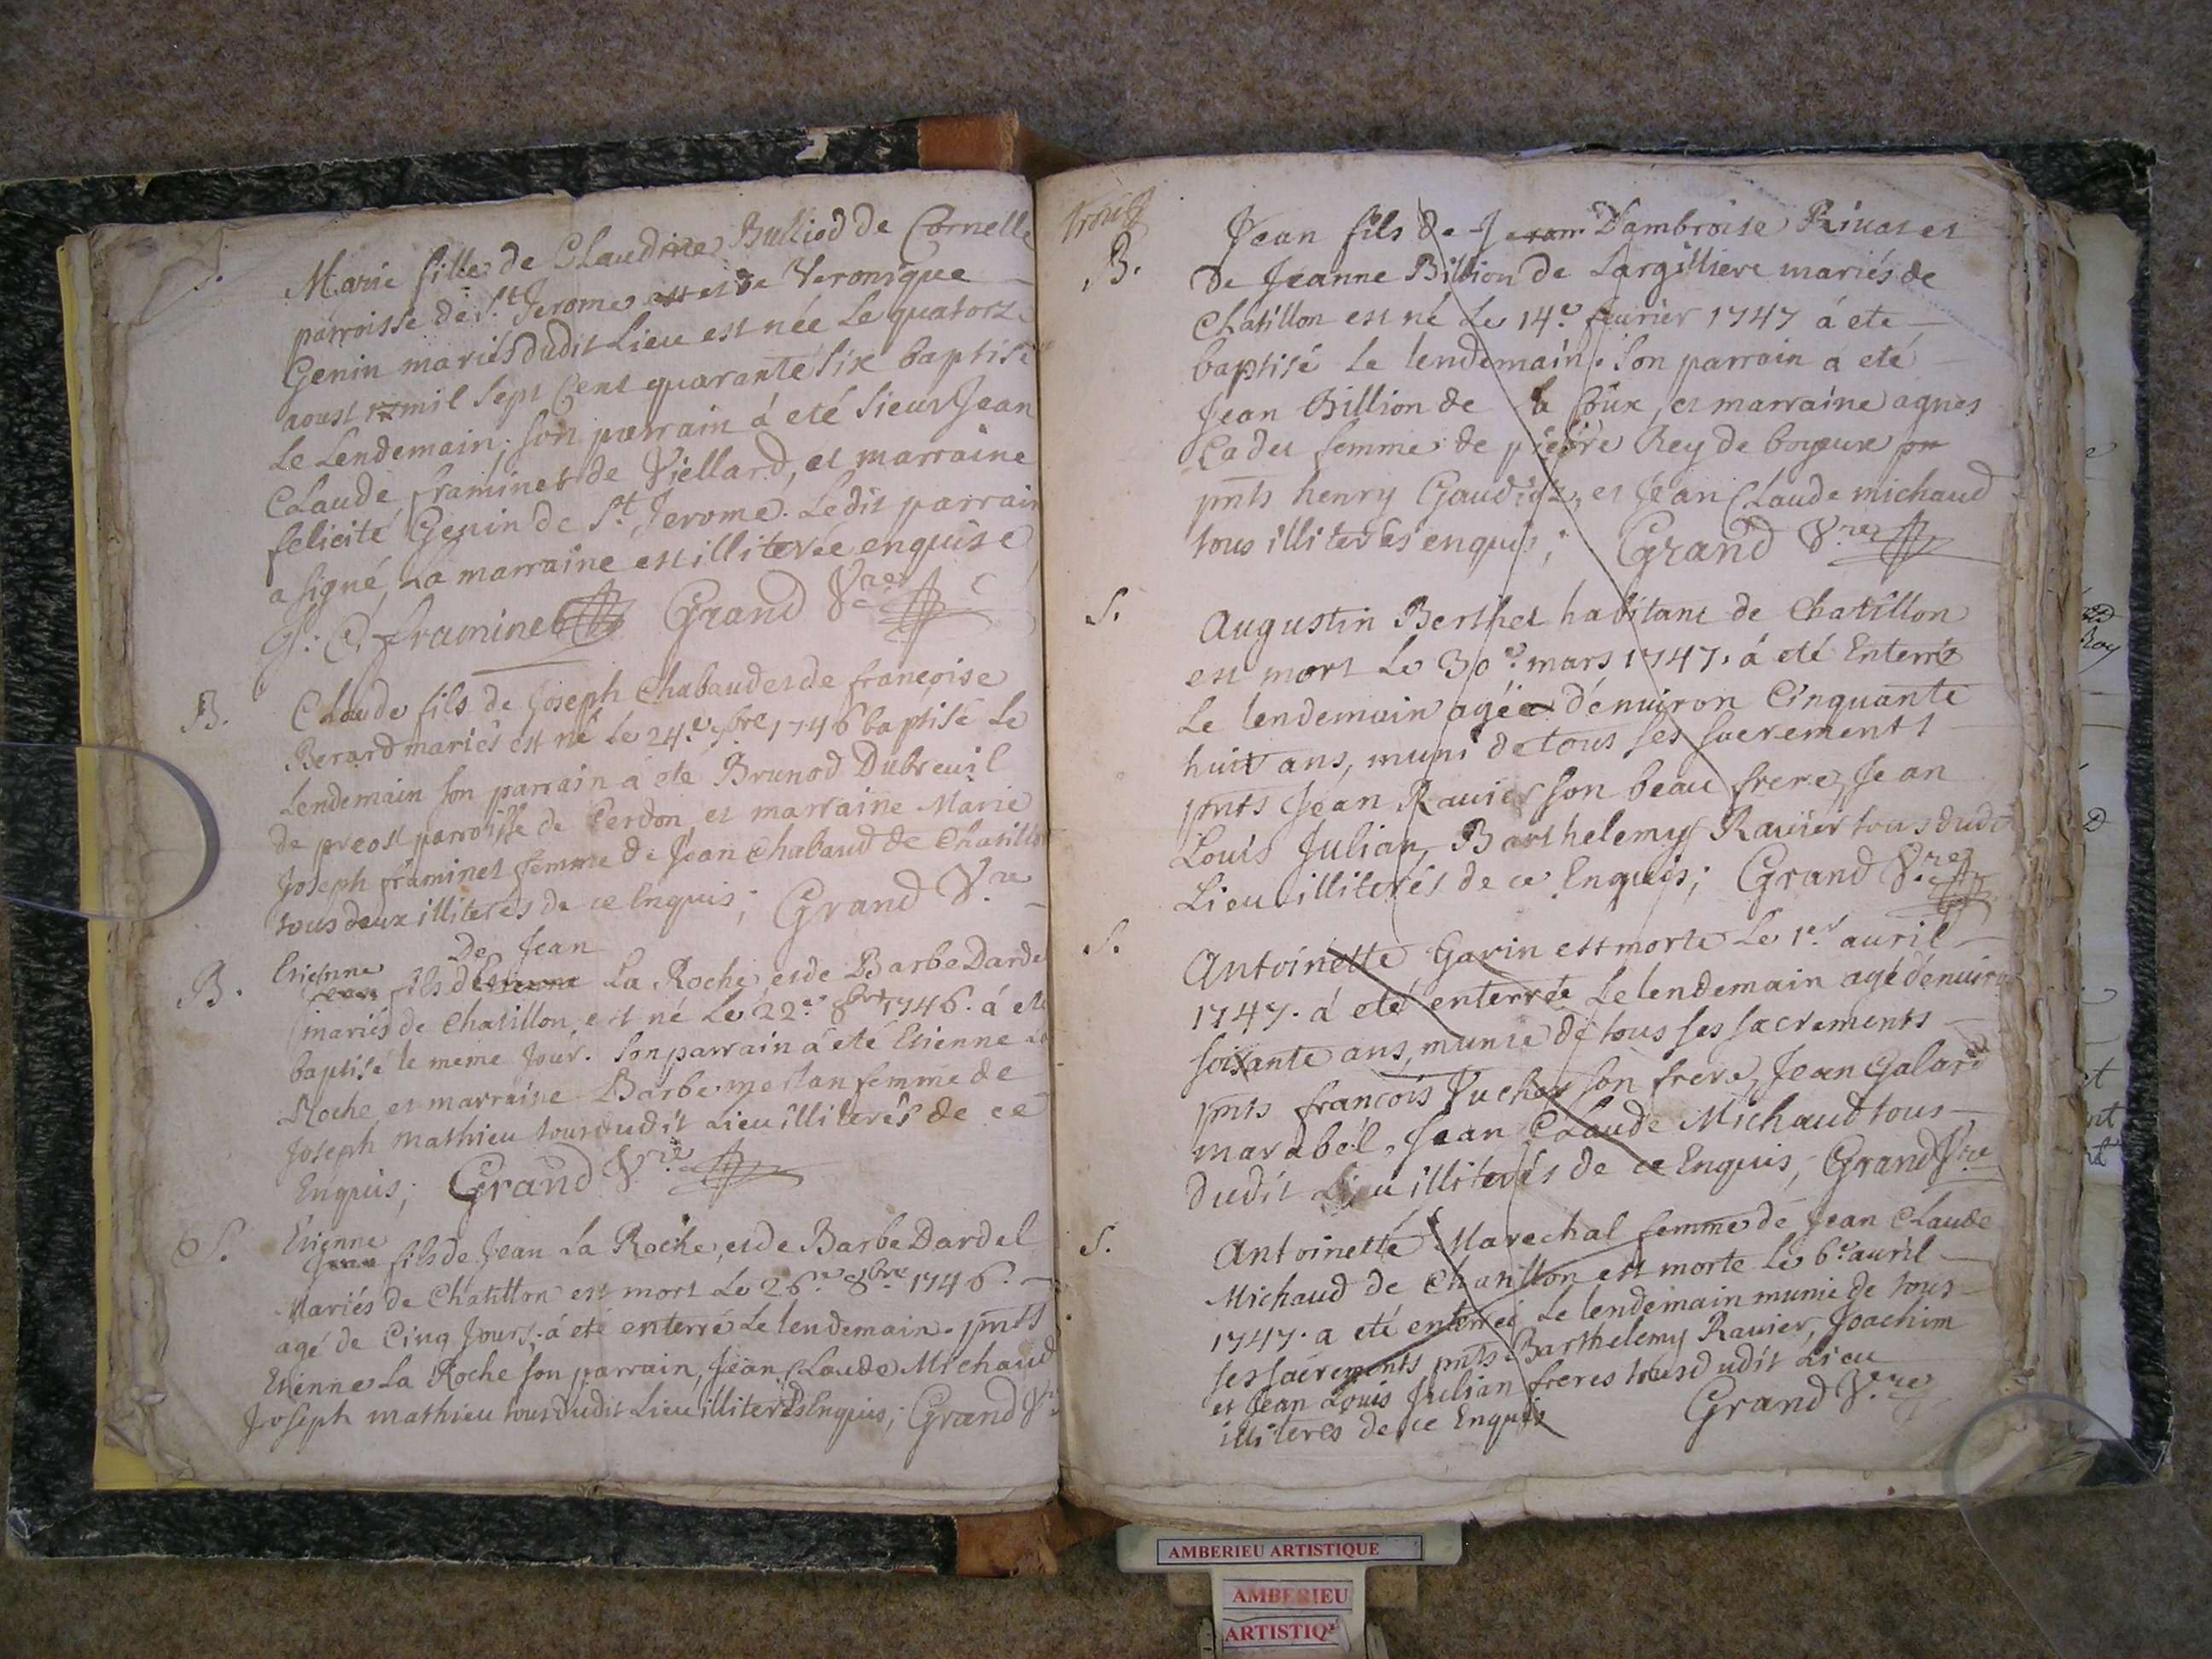 Marie fille de Claudine Bulliod de Cornelle
parroisse de St. Jerome et de Veronique
Genin mariés dudit Lieu est née Le quatorz
aoust mil Sept Cent quarante Six baptisé
Le Lendemain, son parrain á eté Sieur Jean
Claude framinet de Viellard, et marraine
felicité Genin de St. Jerome. Ledit parrain
a signé, La marraine est illiterée enquise
J: C. framinet Grand V.re
B. Claude fils de Joseph Chabaud et de françoise
Berard mariés est né le 24.e 7bre 1746 baptisé Le
Lendemain son parrain á eté Brunod Dubreuil
de preost parroisse de Cerdon et marraine Marie
Joseph framinet femme de Jean Chabaud de Chatillo
tous deux illiterés de ce Enquis; Grand V.re
Etienne De Jean
B. Jean fils d'Etienne La Roche, et de Barbe Darde
mariés de Chatillon est né Le 22.e 8bre 1746. á eté
baptisé le meme Jour. Son parrain á eté Etienne La
Roche et marraine Barbe femme de
Joseph Mathieu tous dudit Lieu illiterés de ce
Enquis; Grand V.re
Etienne
S. Jean fils de Jean La Roche, et de Barbe Dardel
Mariés de Chatillon est mort Le 26.e 8bre 1746.
agé de Cinq Jours, á eté enterré Le lendemain. pnts
Etienne La Roche son parrain, Jean Claude Michaud
Joseph mathieu tous dudit Lieu illiterés Enquis; Grand V.re
B. Jean fils de Jean D'ambroise Rivat et
de Jeanne Billion de Largilliere mariés de
Chatillon est né Le 14.e feurier 1747 á ete
baptisé Le lendemain. Son parrain á eté
Jean Billion de la Coux, et marraine agnes
Cadet femme de pierre Rey de boyeux
pnts henry Gaudioz, et Jean Claude michaud
tous illiterés enquis; Grand V.re
S. Augustin Berthet habitant de Chatillon
est mort Le 30.e mars 1747. á eté Enterré
Le lendemain agé d'énuiron Cinquante
huit ans, muni de tous ses sacrements
pnts Jean Rauier son beau frere, Jean
Louis Julian, Barthelemy Rauier tous dudit
Lieu illiterés de ce Enquis; Grand V.re
S. Antoinette Gavin est morte Le 1.er auril
1747. á eté enterrée Le lendemain agé d'énuiron
soixante ans, munie de tous ses sacrements
pnts françois Vucher son frere, Jean Galard
marabel, Jean Claude Michaud tous
dudit Lieu illiterés de ce Enquis; Grand V.re
S. Antoinette Marechal femme de Jean Claude
Michaud de Chatillon est morte Le 6.e auril
1747. a eté enterrée Le lendemain munie de tous
ses sacrements pnts Barthelemy Rauier, Joachim
et Jean Louis Julian freres tous dudit Lieu
illiteres de ce Enquis Grand V.re
AMBERIEU ARTISTIQUE
AMBERIEU
ARTISTIQ